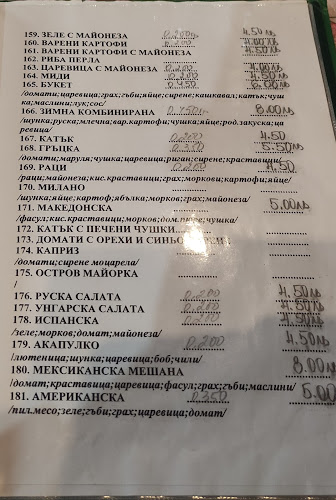 159. ЗЕЛЕ С МАЙОНЕЗА 0.200 4.50лв
160. ВАРЕНИ КАРТОФИ 4.00лв
161. ВАРЕНИ КАРТОФИ С МАЙОНЕЗА 4.50лв
162. РИБА ПЕРЛА
163. ЦАРЕВИЦА С МАЙОНЕЗА 0.200 4.00лв
164. МИДИ 0.200 4.50лв
165. БУКЕТ
/домати;царевица;грах;гъби;яйце;сирене;кашкавал;катък;чушка;маслини;лук;сос/
166. ЗИМНА КОМБИНИРАНА 8.00лв
/шунка;руска;млечна;вар.картофи;чушка;яйце;род.закуска;царевица/
167. КАТЪК 0.200 4.50
168. ГРЪЦКА 5.50лв
/домати;маруля;чушка;царевица;риган;сирене;краставици/
169. РАЦИ 0.200 4.50
/раци;майонеза;кис.краставици;грах;моркови;картофи;яйце/
170. МИЛАНО
/шунка;яйце;картоф;ябълка;морков;грах;майонеза/
171. МАКЕДОНСКА 5.00лв
/фасул;кис.краставици;морков;дом.пюре;чушка/
172. КАТЪК С ПЕЧЕНИ ЧУШКИ
173. ДОМАТИ С ОРЕХИ И
174. КАПРИЗ
/домати;сирене моцарела/
175. ОСТРОВ МАЙОРКА
/
176. РУСКА САЛАТА 0.200 4.50лв
177. УНГАРСКА САЛАТА 0.200 4.50лв
178. ИСПАНСКА 0.200 4.50лв
/зеле;морков;домат;майонеза/
179. АКАПУЛКО 0.200 4.50лв
/лютеница;шунка;царевица;боб;чили/
180. МЕКСИКАНСКА МЕШАНА 8.00лв
/домат;краставица;царевица;фасул;грах;гъби;маслини/
181. АМЕРИКАНСКА 0.350 5.00
/пил.месо;зеле;гъби;грах;царевица;домат/